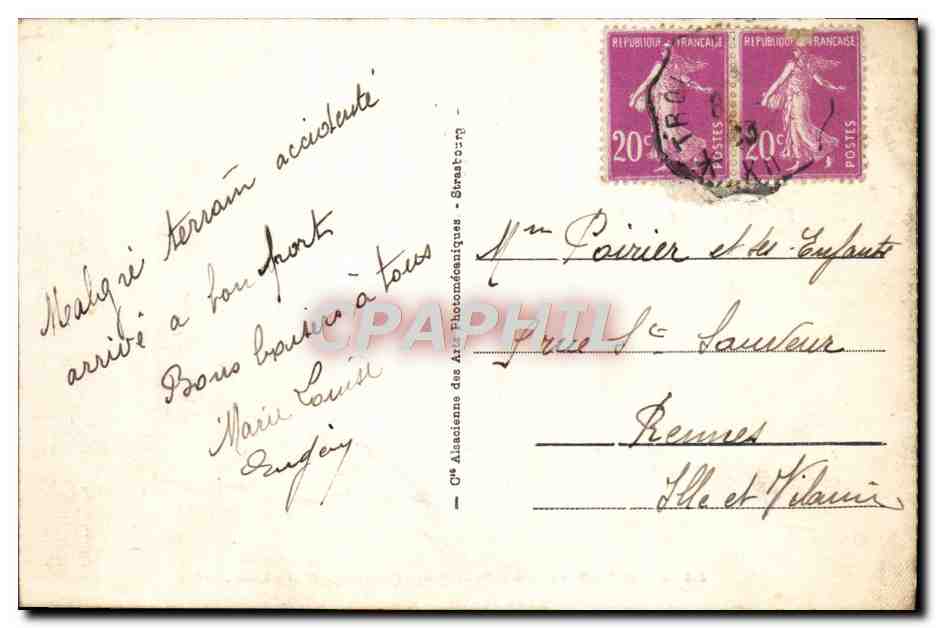 Malgré terrain accidenté
arrivé a bon port
Bons baisers à tous
Marie Louise
Cie Alsacienne des Arts Photomécaniques - Strasbourg
REPUBLIQUE FRANCAISE
20c POSTES
REPUBLIQUE FRANCAISE
20c POSTES
TRO
XII
Mme Poirier et ses Enfants
rue St Sauveur
Rennes
Ille et Vilaine
CPAPHIL